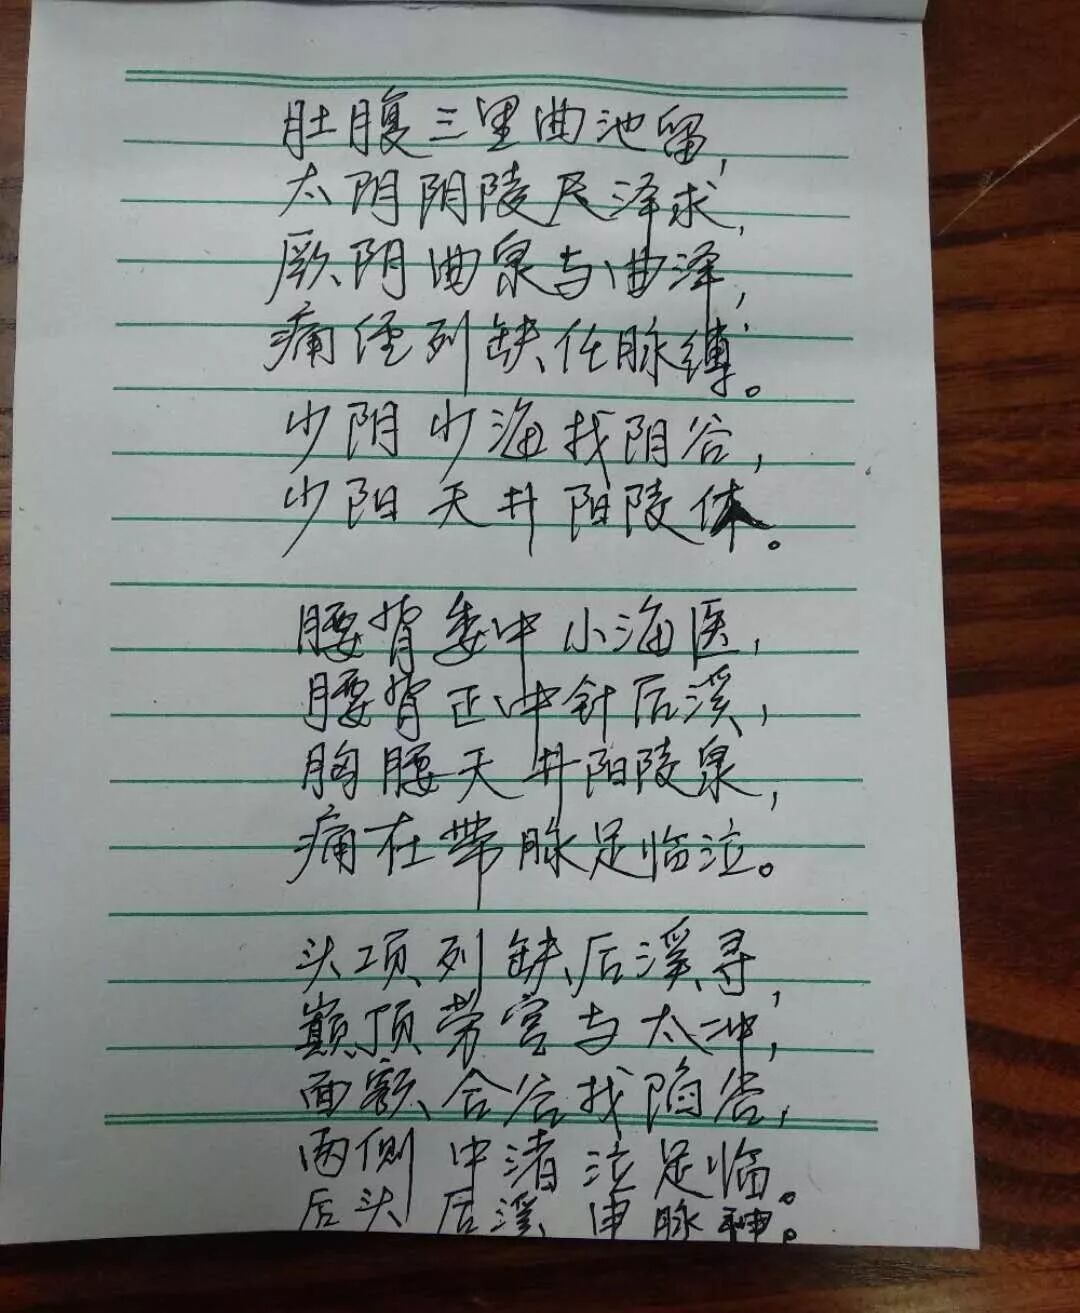 肚腹三里曲池留，
太阴阴陵尺泽求，
厥阴曲泉与曲泽，
痛经列缺任脉缚。
少阴少海找阴谷，
少阳天井阳陵休。
腰背委中小海医，
腰背正中针后溪，
胸腰天井阳陵泉，
痛在带脉足临泣。
头项列缺后溪寻，
巅顶劳宫与太冲，
面额合谷找陷谷，
两侧中渚泣足临。
后头后溪申脉神。